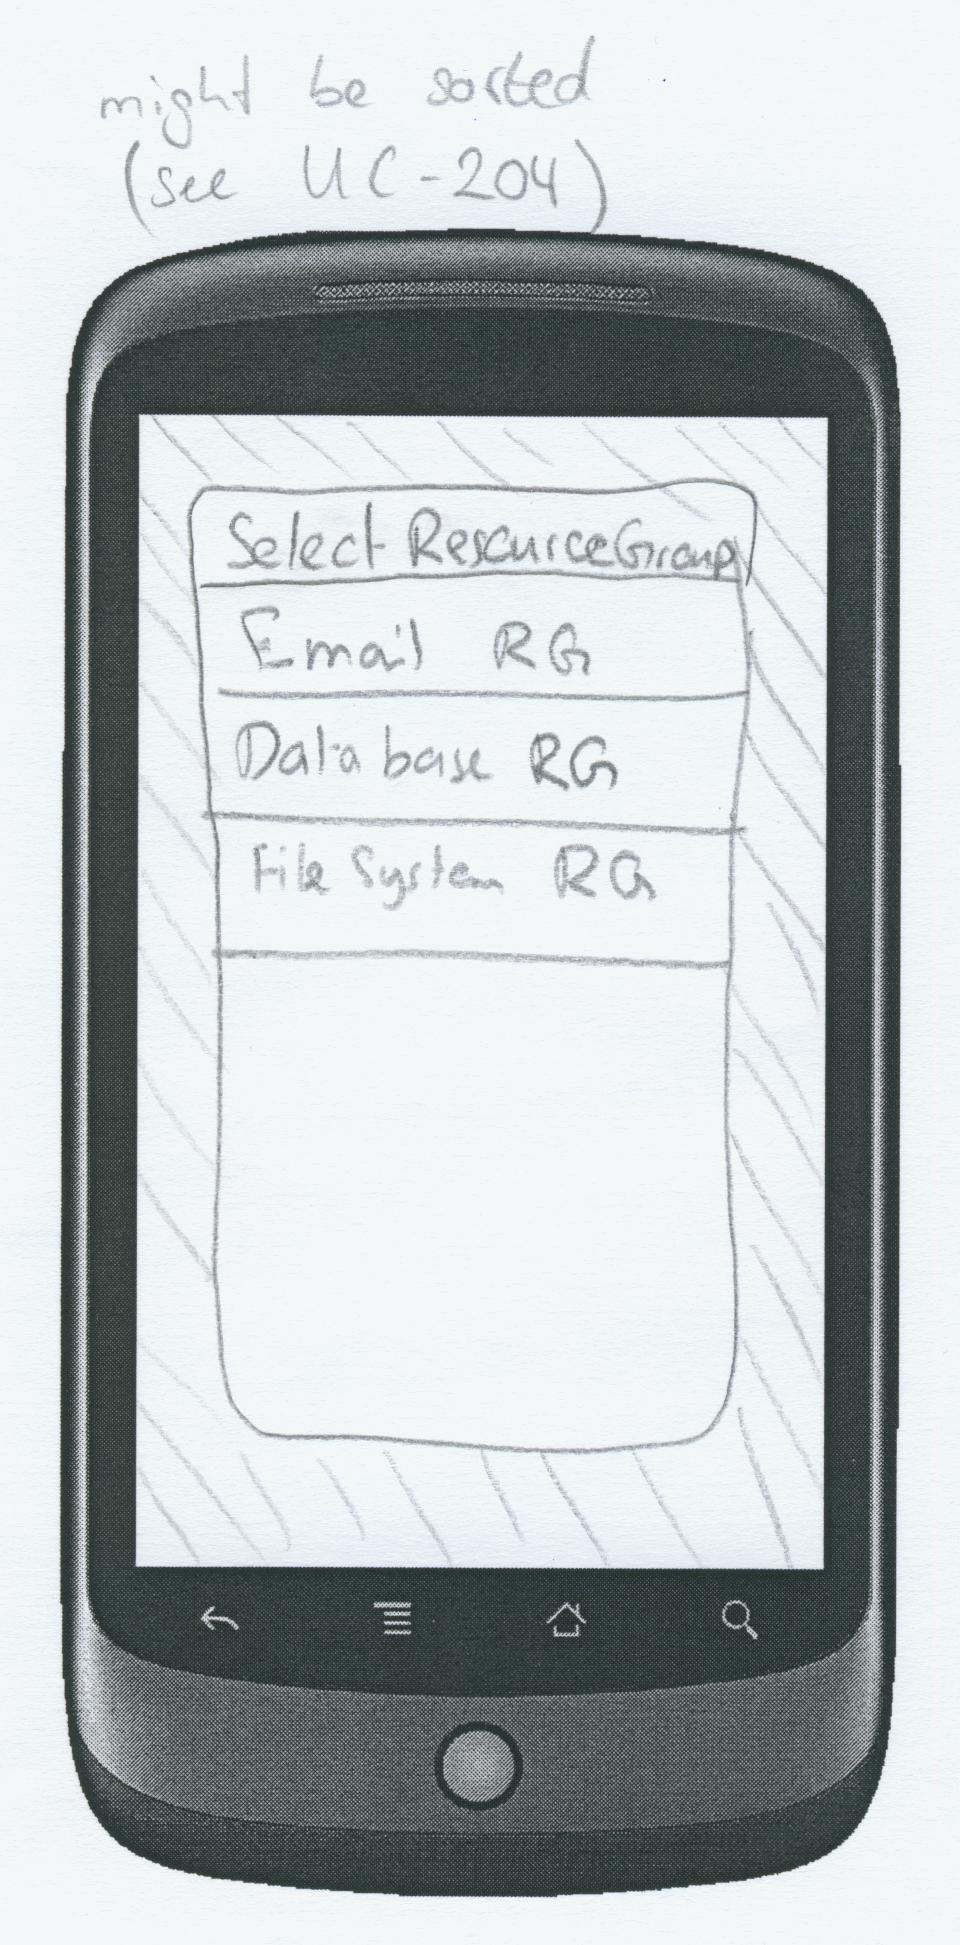 might be sorted
(see UC-204)
Select ResourceGroup
Email RG
Database RG
File System RG